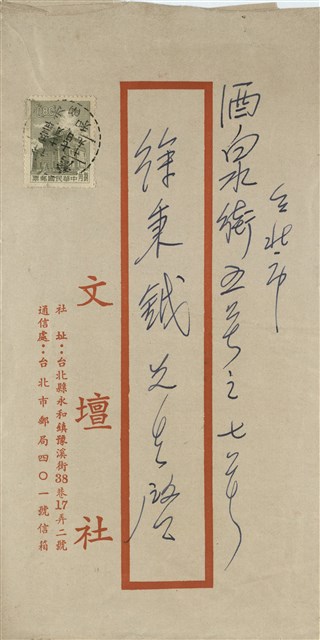 台北市
酒泉街五号之七号
徐秉鉞先生啓
文壇社
社址：台北縣永和鎮豫溪街38巷17弄二號
通信處：台北市郵局四〇一號信箱
票郵國民華中